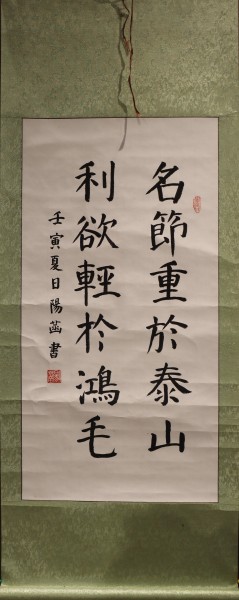 名節重於泰山
利欲輕於鴻毛
壬寅夏日陽菡書